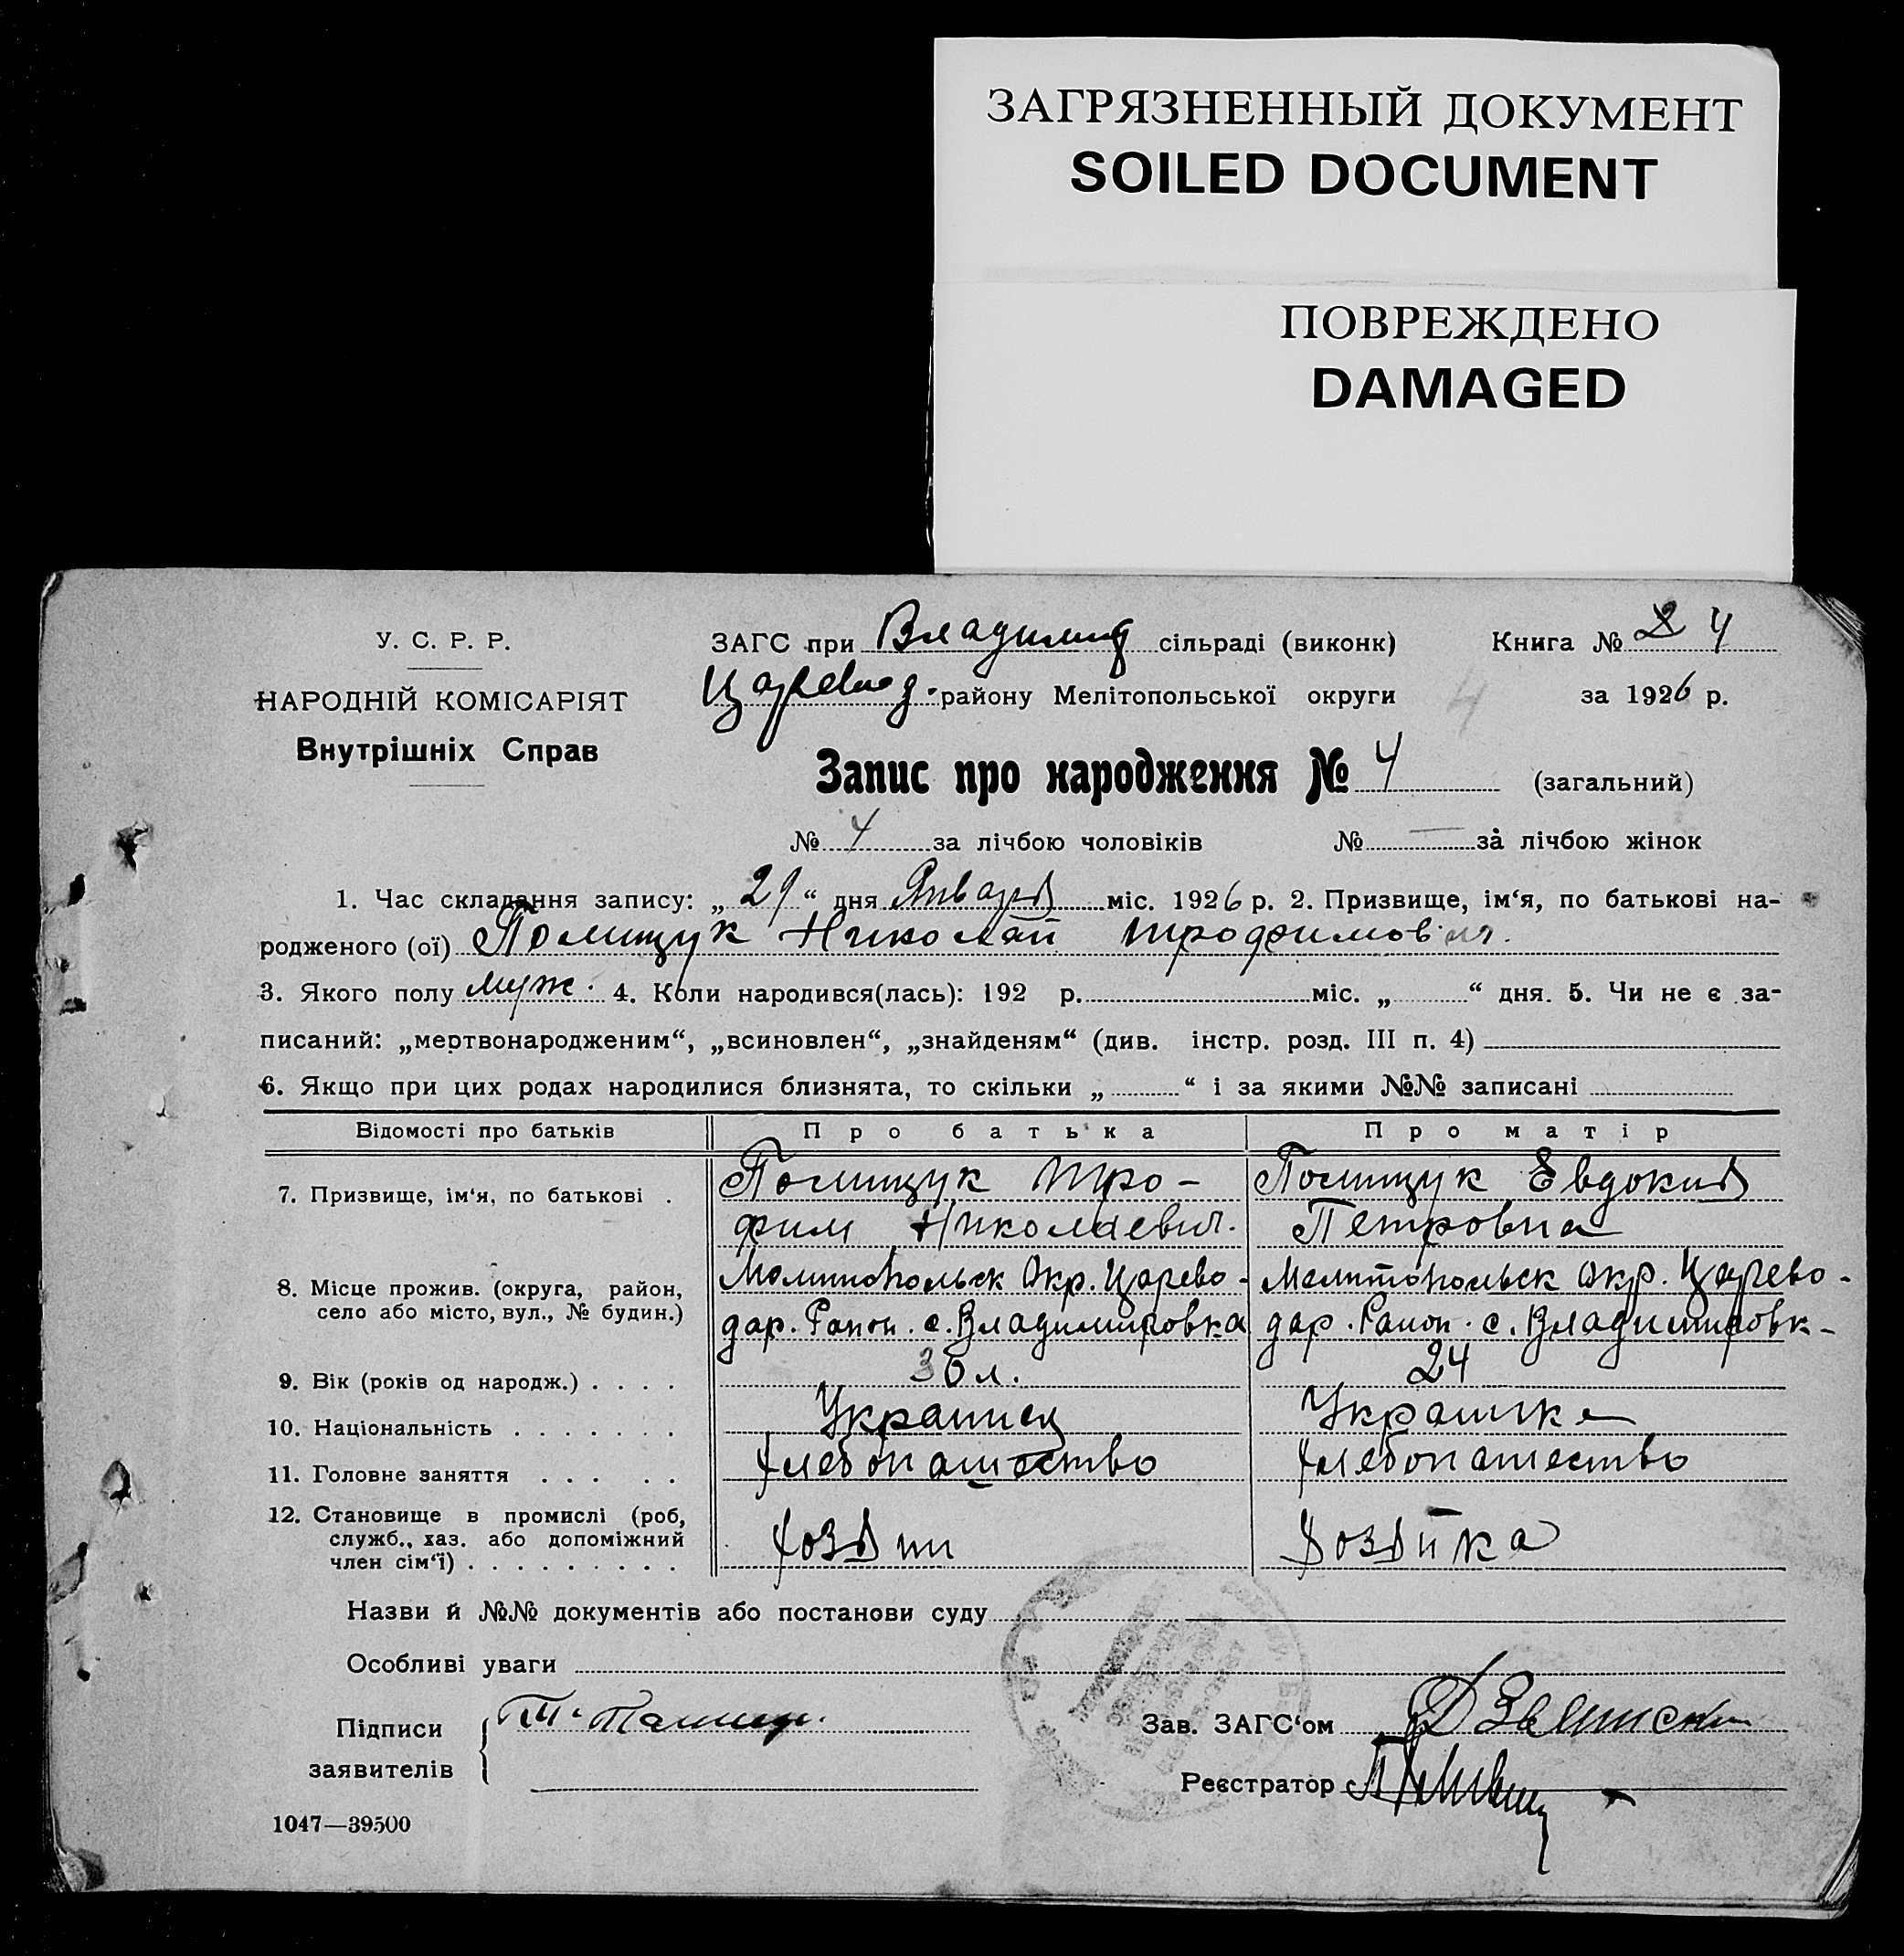 ЗАГРЯЗНЕННЫЙ ДОКУМЕНТ
SOILED DOCUMENT
ПОВРЕЖДЕНО
DAMAGED
У. С. Р. Р.
НАРОДНІЙ КОМІСАРІЯТ
Внутрішніх Справ
ЗАГС при Владимир сільраді (виконк)
Царевод. району Мелітопольської округи
4
Книга № 4
за 1926 р.
Запис про народження № 4 (загальний)
№ 4 за лічбою чоловіків № — за лічбою жінок
1. Час складання запису: „29“ дня Января міс. 1926 р. 2. Призвище, ім‘я, по батькові на-
родженого (ої) Полищук Николай Трофимович.
3. Якого полу муж. 4. Коли народився(лась): 192 р. міс. „ “ дня. 5. Чи не є за-
писаний: „мертвонародженим“, „всиновлен“, „знайденям“ (див. інстр. розд. III п. 4)
6. Якщо при цих родах народилися близнята, то скільки „ “ і за якими №№ записані
Відомості про батьків Про батька Про матір
7. Призвище, ім‘я, по батькові . Полищук Тро- Полищук Евдокия
фим Николаевич. Петровна
8. Місце прожив. (округа, район, Мелитопольск Окр. Царево- Мелитопольск Окр. Царево-
село або місто, вул., № будин.) дар. Район. с. Владимировка дар. Район. с. Владимировк-
9. Вік (років од народж.) . . . . л. 24
10. Національність . . . . . . . Украинец Украинка
11. Головне заняття . . . . . Хлебопашество Хлебопашество
12. Становище в промислі (роб,
служб., хаз. або допоміжний Хозяин Хозяйка
член сім‘ї) . . . . . . . . .
Назви й №№ документів або постанови суду
Особливі уваги
Підписи
заявителів
Зав. ЗАГС‘ом
Реєстратор
1047—39500